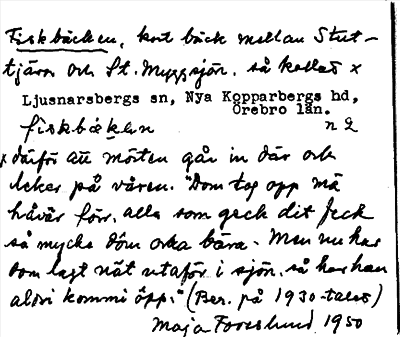 Fiskbäcken, kort bäck mellan Stut-
tjärn och St. Myggsjön. så kallad x
Ljusnarsbergs sn, Nya Kopparbergs hd,
Örebro län.
fiskbäkan n 2
x därför att mörten går in där och
leker på våren. "Dom tog opp mä
håvär förr, alla som geck dit feck
så mycke döm orka bära. Men nu har
dom lagt nät utaför i sjön, så har han
aldri kommi öpp." (Ber. på 1930-talet)
Maja Forslund 1950